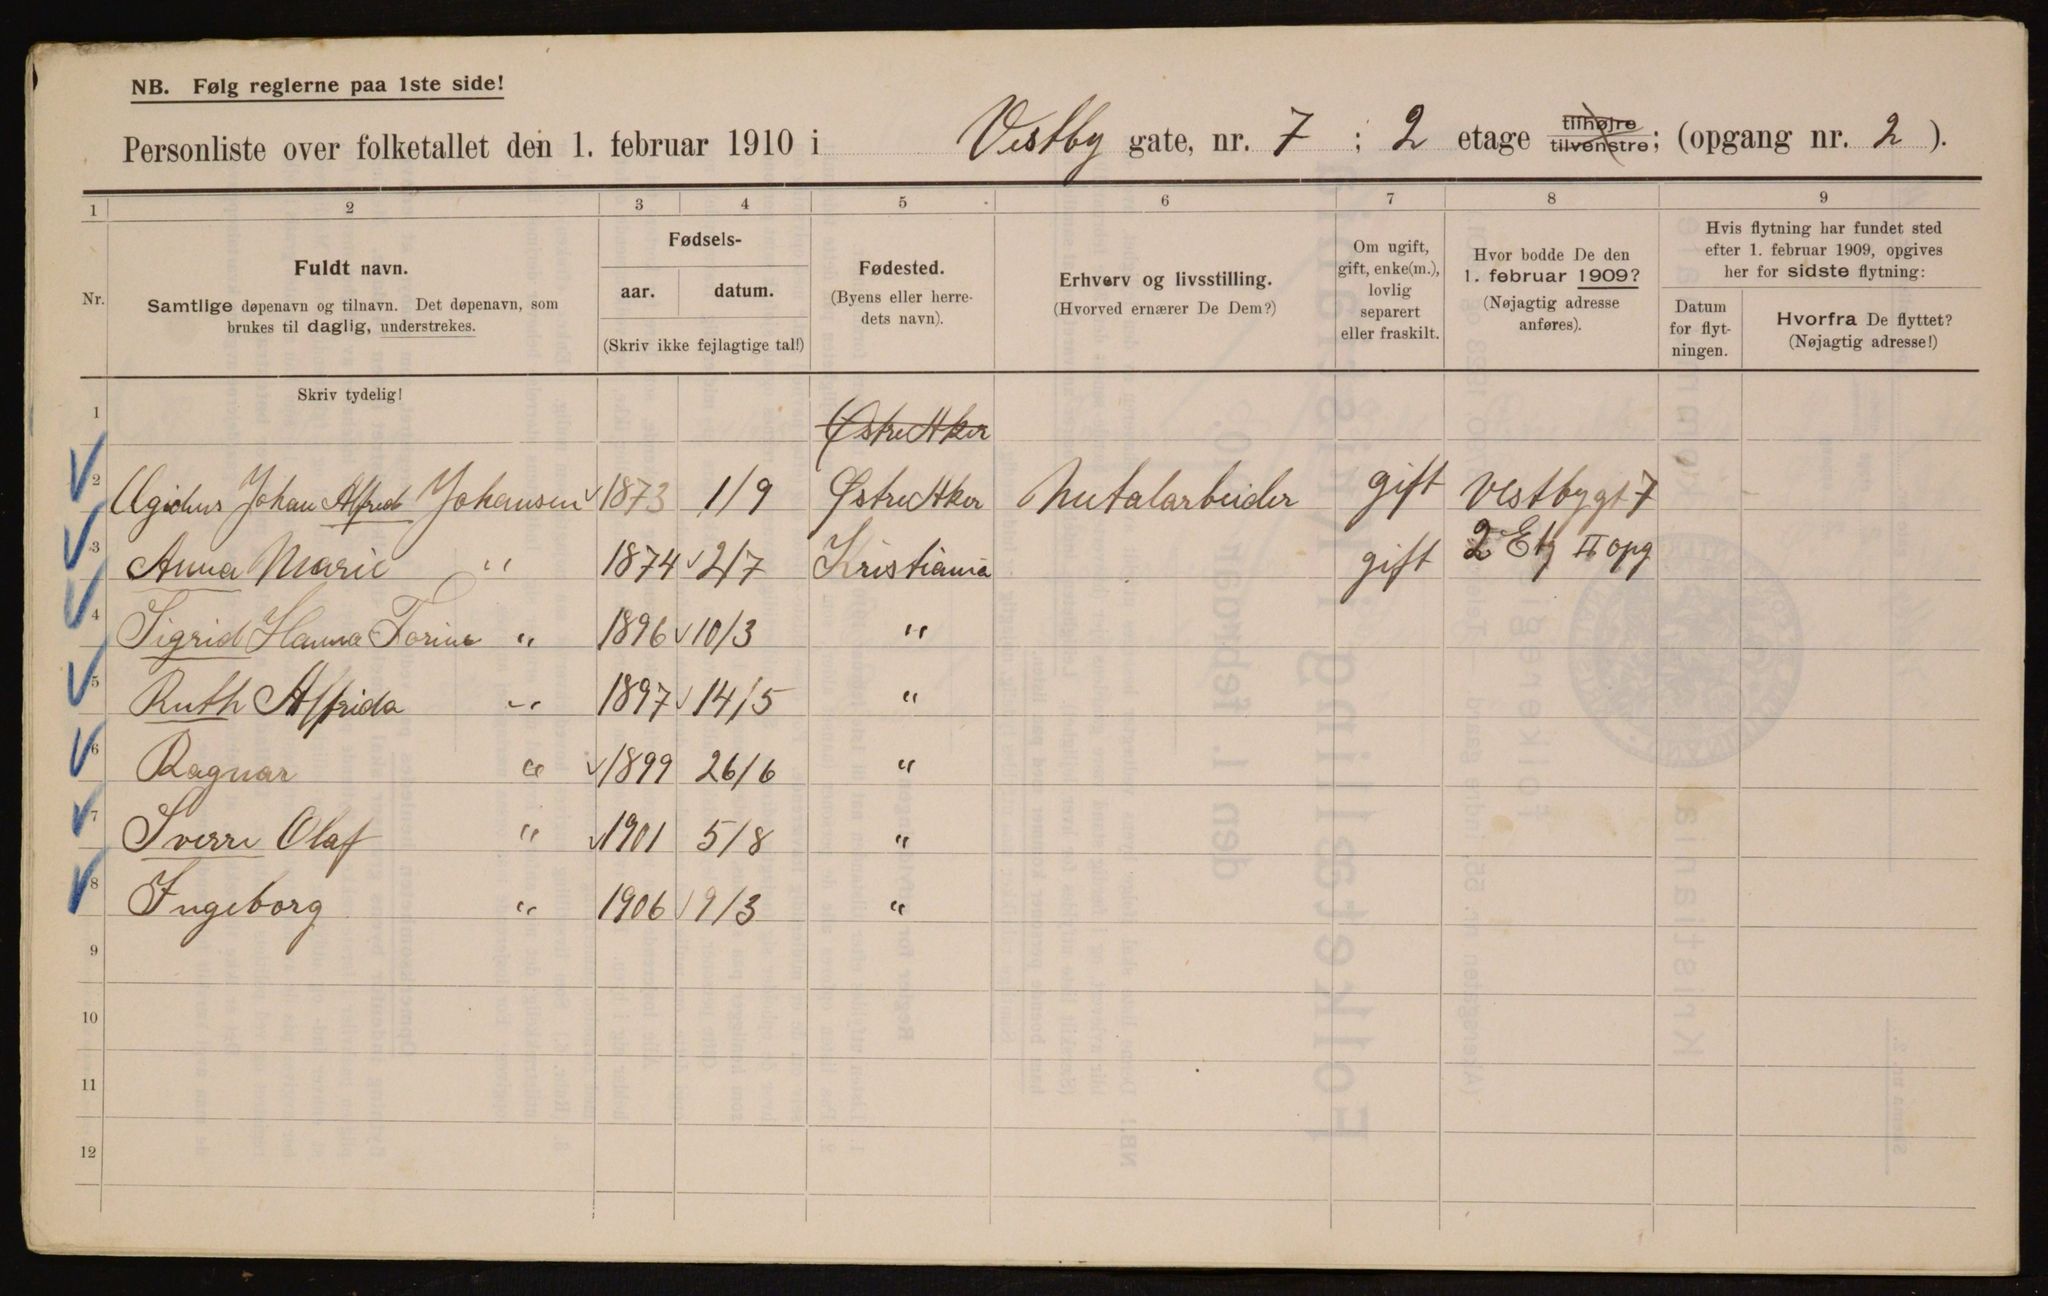 NB. Følg reglerne paa 1ste side!
Personliste over folketallet den 1. februar 1910 i Vestby gate, nr. 7 ; 2 etage tilhøjre tilvenstre ; (opgang nr. 2 ).
1 2 3 4 5 6 7 8 9
Nr.
Fuldt navn.
Samtlige døpenavn og tilnavn. Det døpenavn, som
brukes til daglig, understrekes.
Fødsels-
aar. datum.
(Skriv ikke fejlagtige tal!)
Fødested.
(Byens eller herre-
dets navn).
Erhverv og livsstilling.
(Hvorved ernærer De Dem?)
Om ugift,
gift, enke(m.),
lovlig
separert
eller fraskilt.
Hvor bodde De den
1. februar 1909?
(Nøjagtig adresse
anføres).
Hvis flytning har fundet sted
efter 1. februar 1909, opgives
her for sidste flytning:
Datum
for flyt-
ningen.
Hvorfra De flyttet?
(Nøjagtig adresse!)
Skriv tydelig!
1 Østre Aker
2 Johan Alfred Johansen 1873 1/9 Østre Aker Metalarbeider gift Vestbygt 7
3 Anna Marie " 1874 2/7 Kristiania gift 2 Etg II opg
4 Sigrid Hanna Torine " 1896 10/3 "
5 Ruth Alfrida " 1897 14/5 "
6 Ragnar " 1899 26/6 "
7 Sverre Olaf " 1901 5/8 "
8 Ingeborg " 1906 9/3 "
9
10
11
12